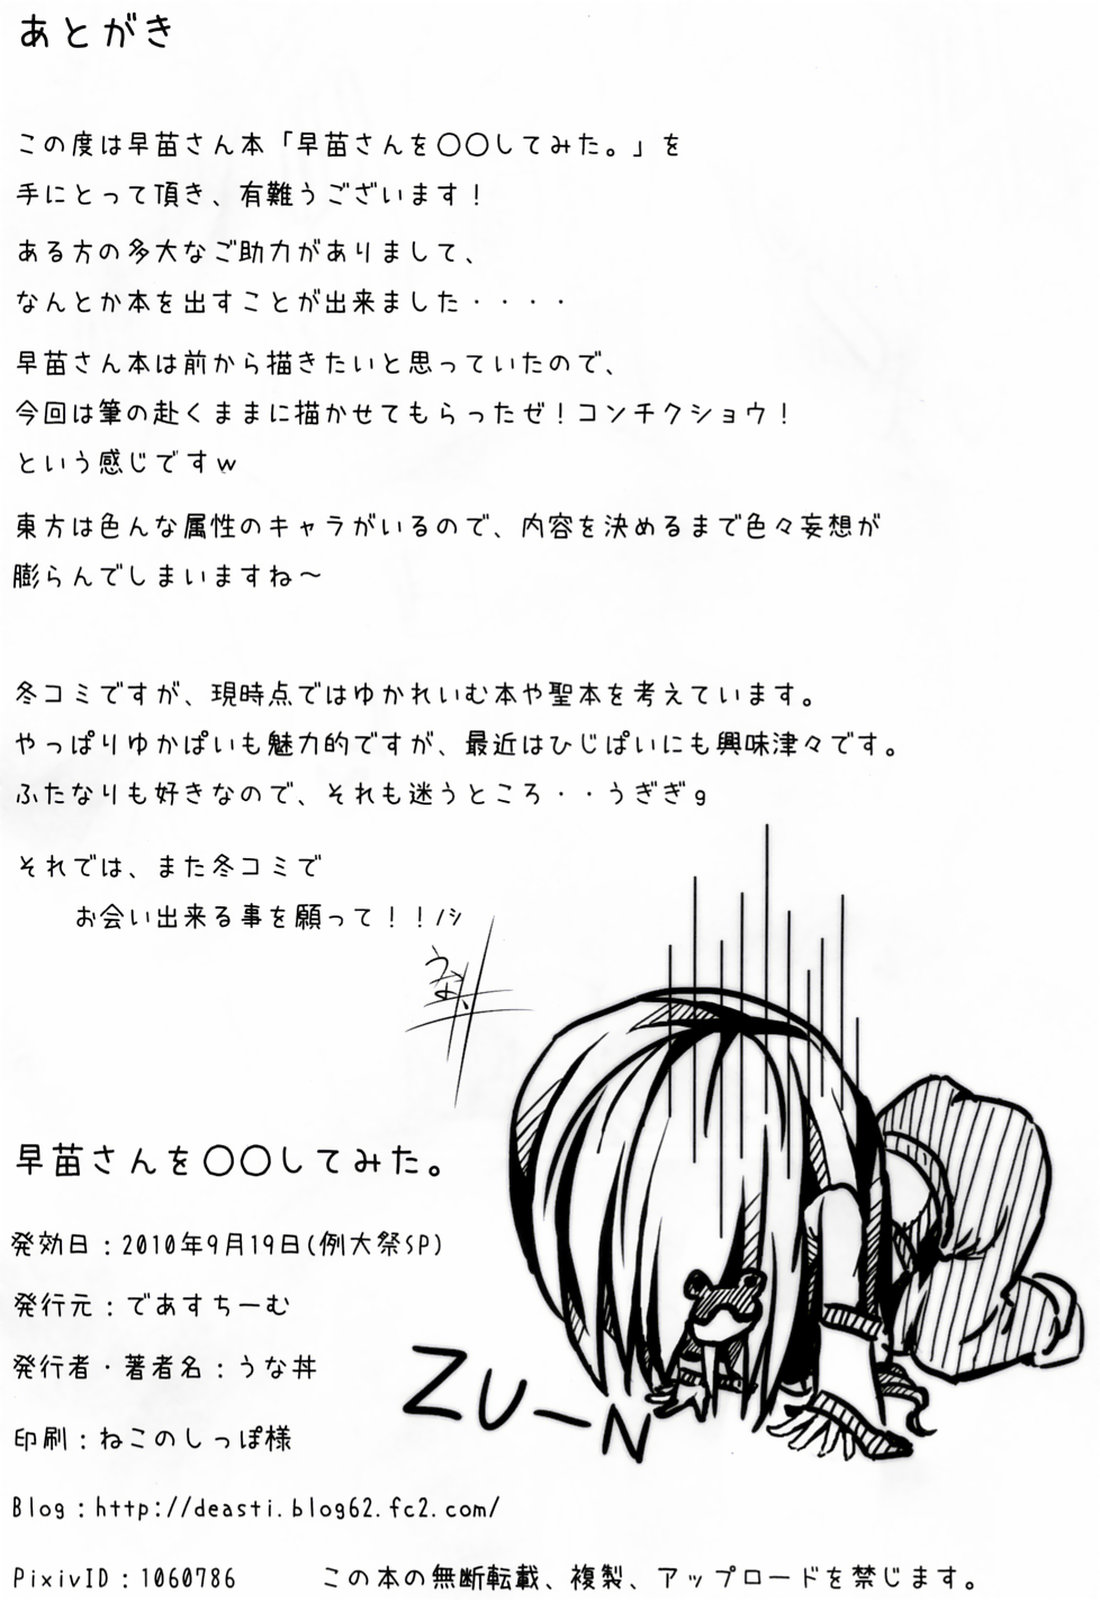 あとがき
この度は早苗さん本「早苗さんを〇〇してみた。」を
手にとって頂き、有難うございます！
ある方の多大なご助力がありまして、
なんとか本を出すことが出来ました・・・・
早苗さん本は前から描きたいと思っていたので、
今回は筆の赴くままに描かせてもらったゼ！コンチクショウ！
という感じですｗ
東方は色んな属性のキャラがいるので、内容を決めるまで色々妄想が
膨らんでしまいますね～
冬コミですが、現時点ではゆかれいむ本や聖本を考えています。
やっぱりゆかぱいも魅力的ですが、最近はひじぱいにも興味津々です。
ふたなりも好きなので、それも迷うところ・・うぎぎｇ
それでは、また冬コミで
お会い出来る事を願って！！ﾉｼ
うな丼
早苗さんを〇〇してみた。
発効日：2010年9月19日(例大祭SP)
発行元：であすちーむ
発行者・著者名：うな丼
ZU-N
印刷：ねこのしっぽ様
Blog：http://deasti.blog62.fc2.com/
PixivID：1060786 この本の無断転載、複製、アップロードを禁じます。